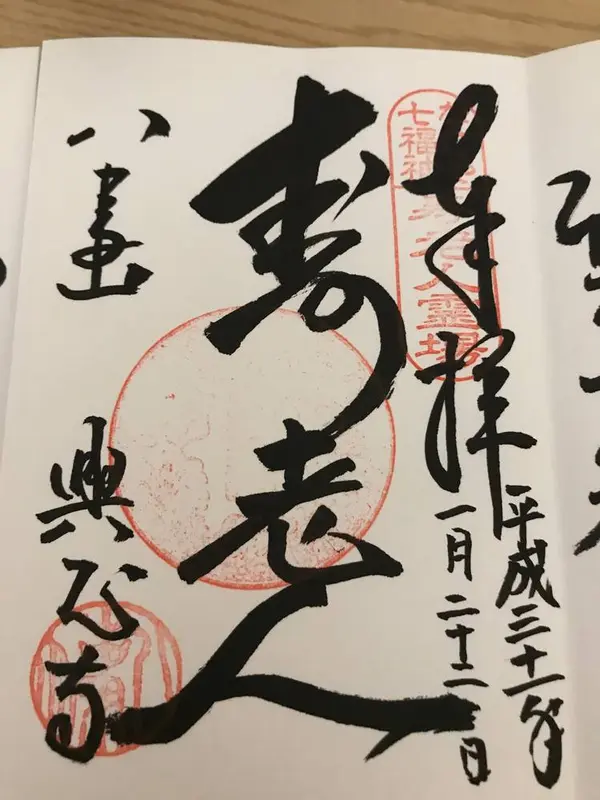 奉拝
平成三十一年
一月二十二日
七福神
老人靈場
寿老人
八事山
興正寺